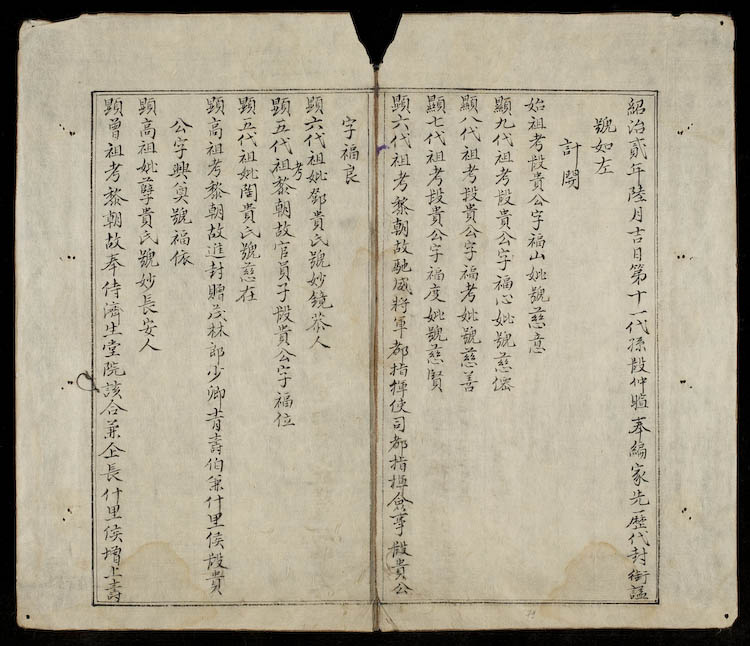 紹治貳年陸月吉日第十一代孫段仲 奉編家先歷代封銜諡
號如左
計開
始祖考段貴公字福山妣號慈意
顯九代祖考段貴公字福心妣號慈
顯八代祖考段貴公字福考妣號慈善
顯七代祖考段貴公字福度妣號慈賢
顯六代祖考黎朝故馳威將軍都指揮使司都指揮僉事段貴公
字福良
顯六代祖妣鄧貴氏號妙鏡恭人
顯五代祖考黎朝故官員子段貴公字福位
顯五代祖妣陶貴氏號慈在
顯高祖考黎朝故進封贈茂林郎少卿 壽伯兼什里侯段貴
公字興 號福依
顯高祖妣 貴氏號妙長安人
顯曾祖考黎朝故奉侍濟生堂院該合兼企長什里侯增上壽